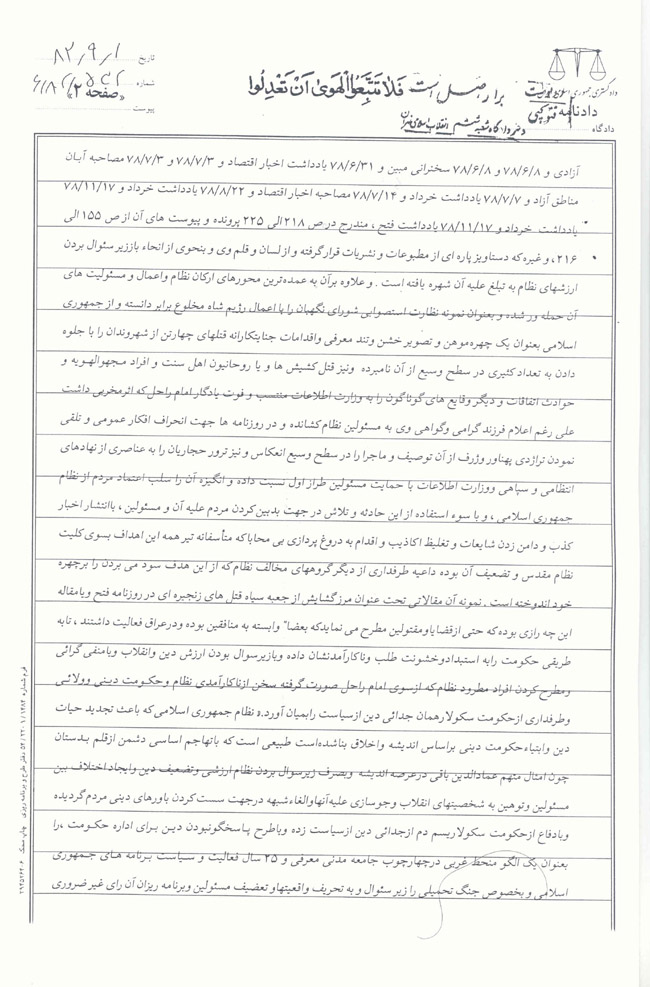 تاریخ ۸۲/۹/۱
شماره
پیوست
«صفحه ۲»
فَلا تَتَّبِعُوا الْهَوىٰ اَنْ تَعْدِلُوا
دادگستری جمهوری اسلامی
دادنامه
دادگاه شعبه ششم انقلاب اسلامی تهران
آزادی و ۷۸/۶/۸ و ۷۸/۶/۸ سخنرانی مبین و ۷۸/۶/۳۱ یادداشت اخبار اقتصاد و ۷۸/۷/۳ و ۷۸/۷/۳ مصاحبه آبان
مناطق آزاد و ۷۸/۷/۷ یادداشت خرداد و ۷۸/۷/۱۴ مصاحبه اخبار اقتصاد و ۷۸/۸/۲۲ یادداشت خرداد و ۷۸/۱۱/۱۷
یادداشت خرداد و ۷۸/۱۱/۱۷ یادداشت فتح ، مندرج در ص ۲۱۸ الی ۲۲۵ پرونده و پیوست های آن از ص ۱۵۵ الی
۲۱۶، و غیره که دستاویز پاره ای از مطبوعات و نشریات قرار گرفته و از لسان و قلم وی و بنحوی از انحاء باز زیر سئوال بردن
ارزشهای نظام به تبلغ علیه آن شهره یافته است . و علاوه بر آن به عمده ترین محورهای ارکان نظام و اعمال و مسئولیت های
آن حمله ور شده و بعنوان نمونه نظارت استصوابی شورای نگهبان را با اعمال رژیم شاه مخلوع برابر دانسته و از جمهوری
اسلامی بعنوان یک چهره موهن و تصویر خشن و تند معرفی و اقدامات جنایتکارانه قتلهای چهارتن از شهروندان را با جلوه
دادن به تعداد کثیری در سطح وسیع از آن نامبرده و نیز قتل کشیش ها و یا روحانیون اهل سنت و افراد مجهوالهویه و
حوادث اتفاقات و دیگر وقایع های گوناگون را به وزارت اطلاعات منتسب و فوت یادگار امام راحل که اثر مخربی داشت
علی رغم اعلام فرزند گرامی و گواهی وی به مسئولین نظام کشانده و در روزنامه ها جهت انحراف افکار عمومی و تلقی
نمودن تراژدی پهناور و ژرف از آن توصیف و ماجرا را در سطح وسیع انعکاس و نیز ترور حجاریان را به عناصری از نهادهای
انتظامی و سپاهی و وزارت اطلاعات با حمایت مسئولین طراز اول نسبت داده و انگیزه آن را سلب اعتماد مردم از نظام
جمهوری اسلامی ، و با سوء استفاده از این حادثه و تلاش در جهت بدبین کردن مردم علیه آن و مسئولین ، با انتشار اخبار
کذب و دامن زدن شایعات و تغلیظ اکاذیب و اقدام به دروغ پردازی بی محابا که متأسفانه تیر همه این اهداف بسوی کلیت
نظام مقدس و تضعیف آن بوده داعیه طرفداری از دیگر گروههای مخالف نظام که از این هدف سود می بردن را بر چهره
خود اندوخته است . نمونه آن مقالاتی تحت عنوان مرز گشایش از جعبه سیاه قتل های زنجیره ای در روزنامه فتح و یا مقاله
این چه رازی بوده که حتی از قضایا و مقتولین مطرح می نماید که بعضا" وابسته به منافقین بوده و در عراق فعالیت داشتند ، تا به
طریقی حکومت را به استبداد و خشونت طلب و ناکارآمد نشان داده و بازیر سوال بودن ارزش دین و انقلاب و با منفی گرائی
و مطرح کردن افراد مطرود نظام که از سوی امام راحل صورت گرفته سخن از ناکارآمدی نظام و حکومت دینی و ولائی
و طرفداری از حکومت سکولار همان جدائی دین از سیاست را بمیان آورد. نظام جمهوری اسلامی که باعث تجدید حیات
دین و ابتناء حکومت دینی بر اساس اندیشه و اخلاق بنا شده است طبیعی است که با تهاجم اساسی دشمن از قلم بدستان
چون امثال متهم عمادالدین باقی در عرصه اندیشه و بصرف زیر سوال بردن نظام ارزشی و تضعیف دین و ایجاد اختلاف بین
مسئولین و توهین به شخصیتهای انقلاب و جوسازی علیه آنها و القاء شبهه در جهت سست کردن باورهای دینی مردم گردیده
و با دفاع از حکومت سکولاریسم دم از جدائی دین از سیاست زده و با طرح پاسخگو نبودن دین برای اداره حکومت ، را
بعنوان یک الگو منحط غربی در چهارچوب جامعه مدنی معرفی و ۲۵ سال فعالیت و سیاست برنامه های جمهوری
اسلامی و بخصوص جنگ تحمیلی را زیر سئوال و به تحریف واقعیتها و تضعیف مسئولین و برنامه ریزان آن رای غیر ضروری